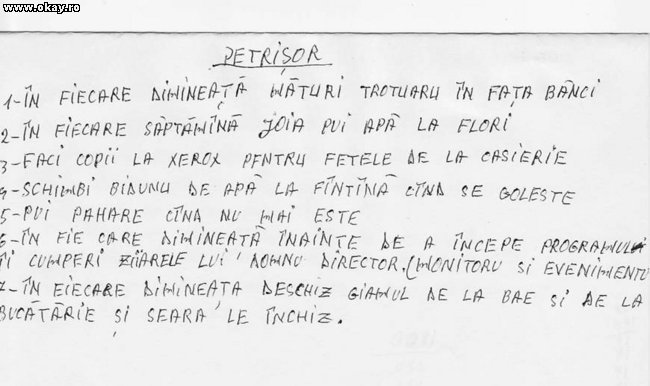 www.okay.ro
PETRIȘOR
1-ÎN FIECARE DIMINEAȚĂ MĂTURI TROTUARU ÎN FAȚA BĂNCI
2-ÎN FIECARE SĂPTĂMÎNĂ JOIA PUI APĂ LA FLORI
3-FACI COPII LA XEROX PENTRU FETELE DE LA CASIERIE
4-SCHIMBI BIDUNU DE APĂ LA FÎNTÎNĂ CÎND SE GOLESTE
5-PUI PAHARE CÎND NU MAI ESTE
6-ÎN FIE CARE DIMINEATĂ ÎNAINȚE DE A ÎNCEPE PROGRAMULUI
ȚI CUMPERI ZIARELE LUI DOMNU DIRECTOR.(MONITORU SI EVENIMENTU
7-ÎN FIECARE DIMINEATA DESCHIZ GIAMUL DE LA BAE SI DE LA
BUCĂTĂRIE ȘI SEARA LE ÎNCHIZ.